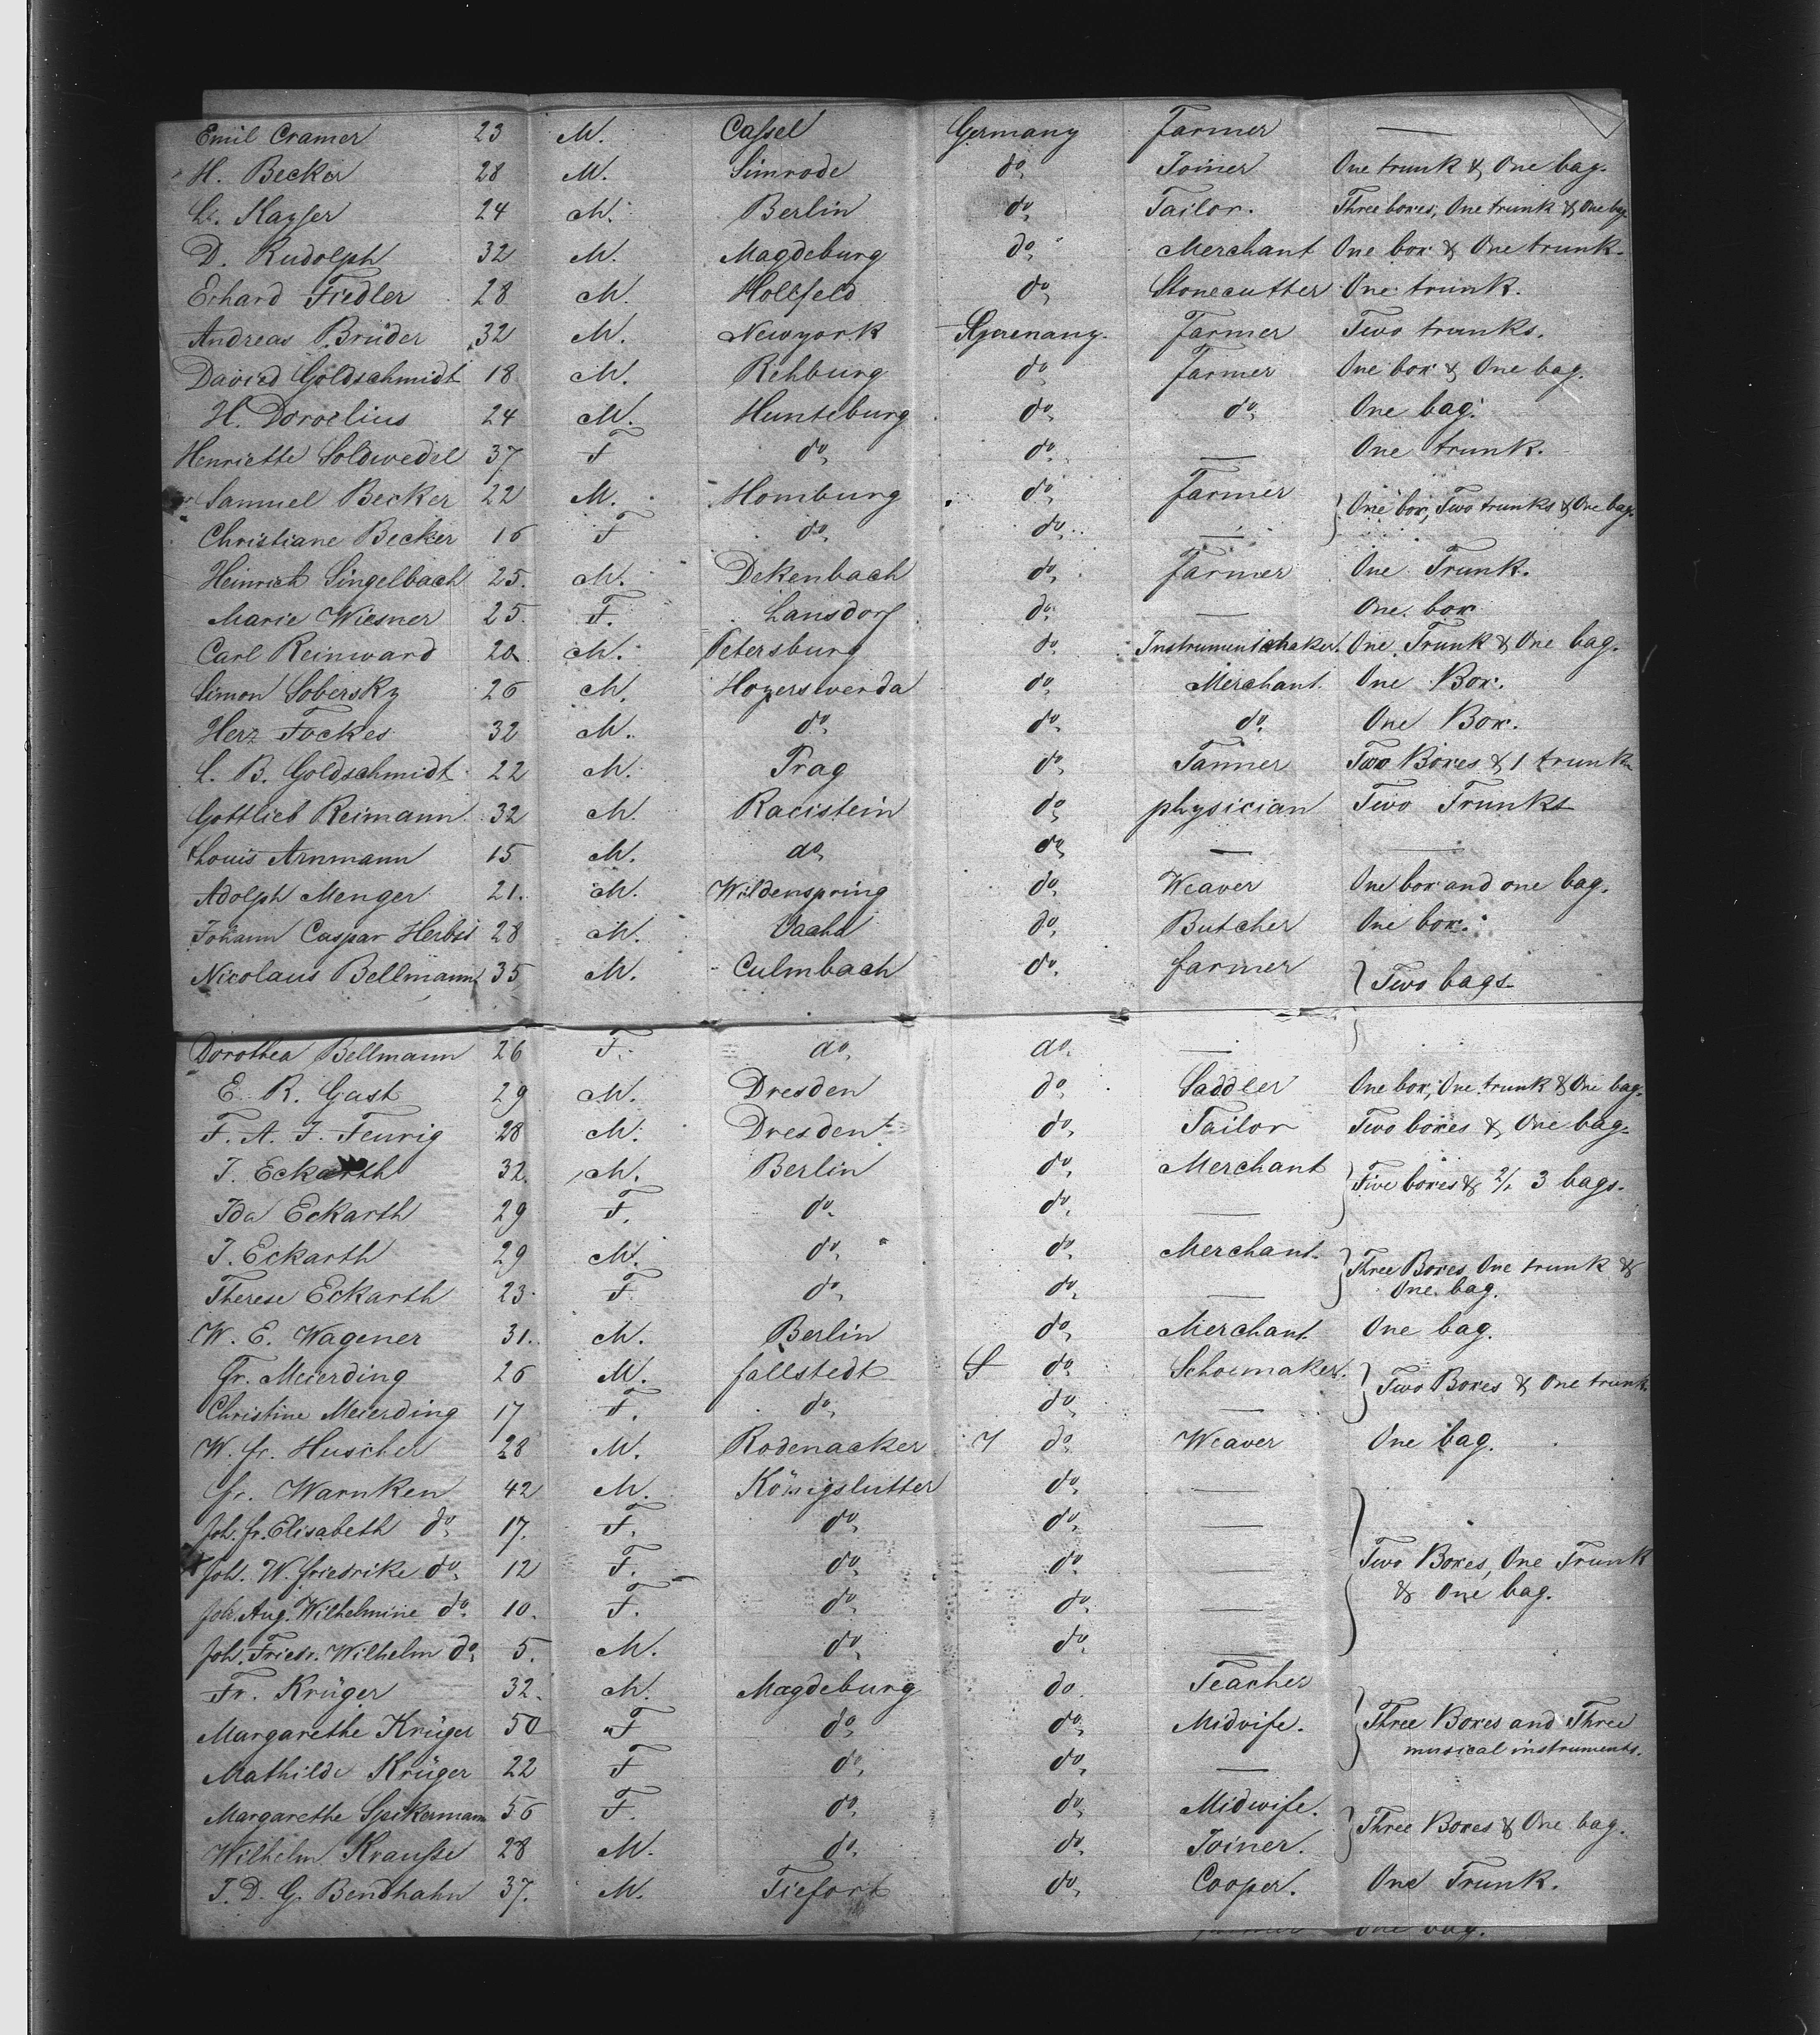 Emil Cramer 23 M. Cassel Germany Farmer —
H. Becker 28 M. Simrode do Joiner One trunk & One bag.
L. Kayser 24 M. Berlin do Tailor. Three boxes, One trunk & One bag
D. Rudolph 32 M. Magdeburg do Merchant One box & One trunk.
Erhard Fiedler 28 M. Hollfeld do Stonecutter One trunk.
Andreas Brüder 32 M. Newyork Germany. Farmer Two trunks.
David Goldschmidt 18 M. Rehburg do Farmer One box & One bag.
H. Dorvelius 24 M. Hunteburg do do One bag.
Henriette Soldwedel 37 F do do — One trunk.
Samuel Becker 22 M. Homburg do Farmer One box, Two trunks & One bag.
Christiane Becker 16 F do do —
Heinrich Singelbach 25. M. Dekenbach do Farmer One Trunk.
Marie Wiesner 25. F. Lansdorf do — One box
Carl Reinward 20 M. Petersburg do Instrumentmaker. One Trunk & One bag.
Simon Sobersky 26 M. Hoyerswerda do Merchant. One Box.
Herz Fockes 32 M. do do do One Box.
L. B. Goldschmidt 22 M. Prag do Tanner Two Boxes & 1 trunk
Gottlieb Reimann 32 M. Racistein do physician Two Trunks
Louis Arnmann 15 M. do do — —
Adolph Menger 21. M. Wildenspring do Weaver One box and one bag.
Johann Caspar Herbst 28 M. Vacha do Butcher One box.
Nicolaus Bellmann 35 M. Culmbach do farmer Two bags
Dorothea Bellmann 26 F. do do —
E. R. Gast 29 M. Dresden do Saddler One box, One trunk & One bag.
F. A. J. Feurig 28 M. Dresden do Tailor Two boxes & One bag.
J. Eckarth 32. M. Berlin do Merchant Five boxes & 2/2 3 bags.
Ida Eckarth 29 F. do do —
J. Eckarth 29 M. do do Merchant. Three Boxes One trunk &
Therese Eckarth 23. F do do — One bag.
W. E. Wagener 31. M. Berlin do Merchant One bag.
Fr. Meierding 26 M. fallstedt do Schoemaker. Two Boxes & One trunk.
Christine Meierding 17 F. do do —
W. fr. Huscher 28 M. Rodenacker do Weaver One bag.
fr. Warnken 42 M. Königslutter do —
Joh. fr. Elisabeth do 17. F. do do —
Joh. W. friedrike do 12 F. do do — Two Boxes, One Trunk
Joh. Aug. Wilhelmine do 10. F. do do — & One bag.
Joh. Friedr. Wilhelm do 5. M. do do —
Fr. Krüger 32. M. Magdeburg do Teacher
Margarethe Krüger 50 F do do Midvife. Three Boxes and Three
Mathilde Krüger 22 F do do — musical instruments.
Margarethe Spikermann 56 F. do do Midwife. Three Boxes & One bag.
Wilhelm Krausse 28 M. do do Joiner.
J. D. G. Bendhahn 37. M. Tiefort do Cooper. One Trunk.
farmer One bag.